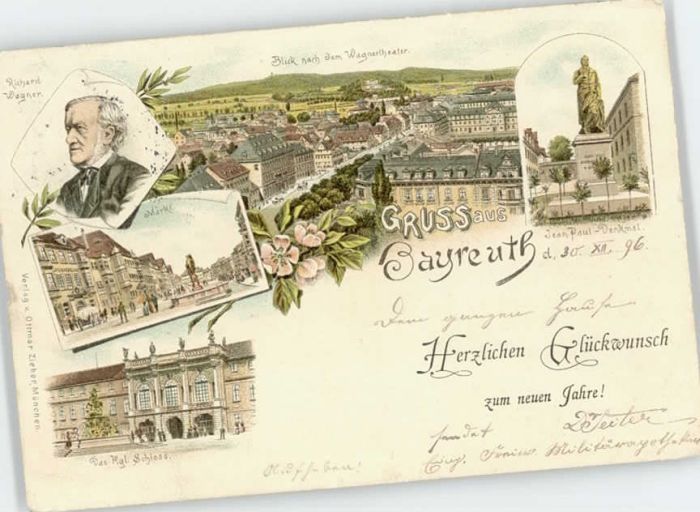 Richard
Wagner.
Blick nach dem Wagnertheater.
Markt.
Jean Paul-Denkmal.
GRUSS aus
Bayreuth
d. 30. XII. 96.
Dem ganzen Hause
Herzlichen Glückwunsch
zum neuen Jahre!
sendet
Militärapotheker
Das Kgl. Schloss.
Aufheben!
Verlag v. Ottmar Zieher, München.